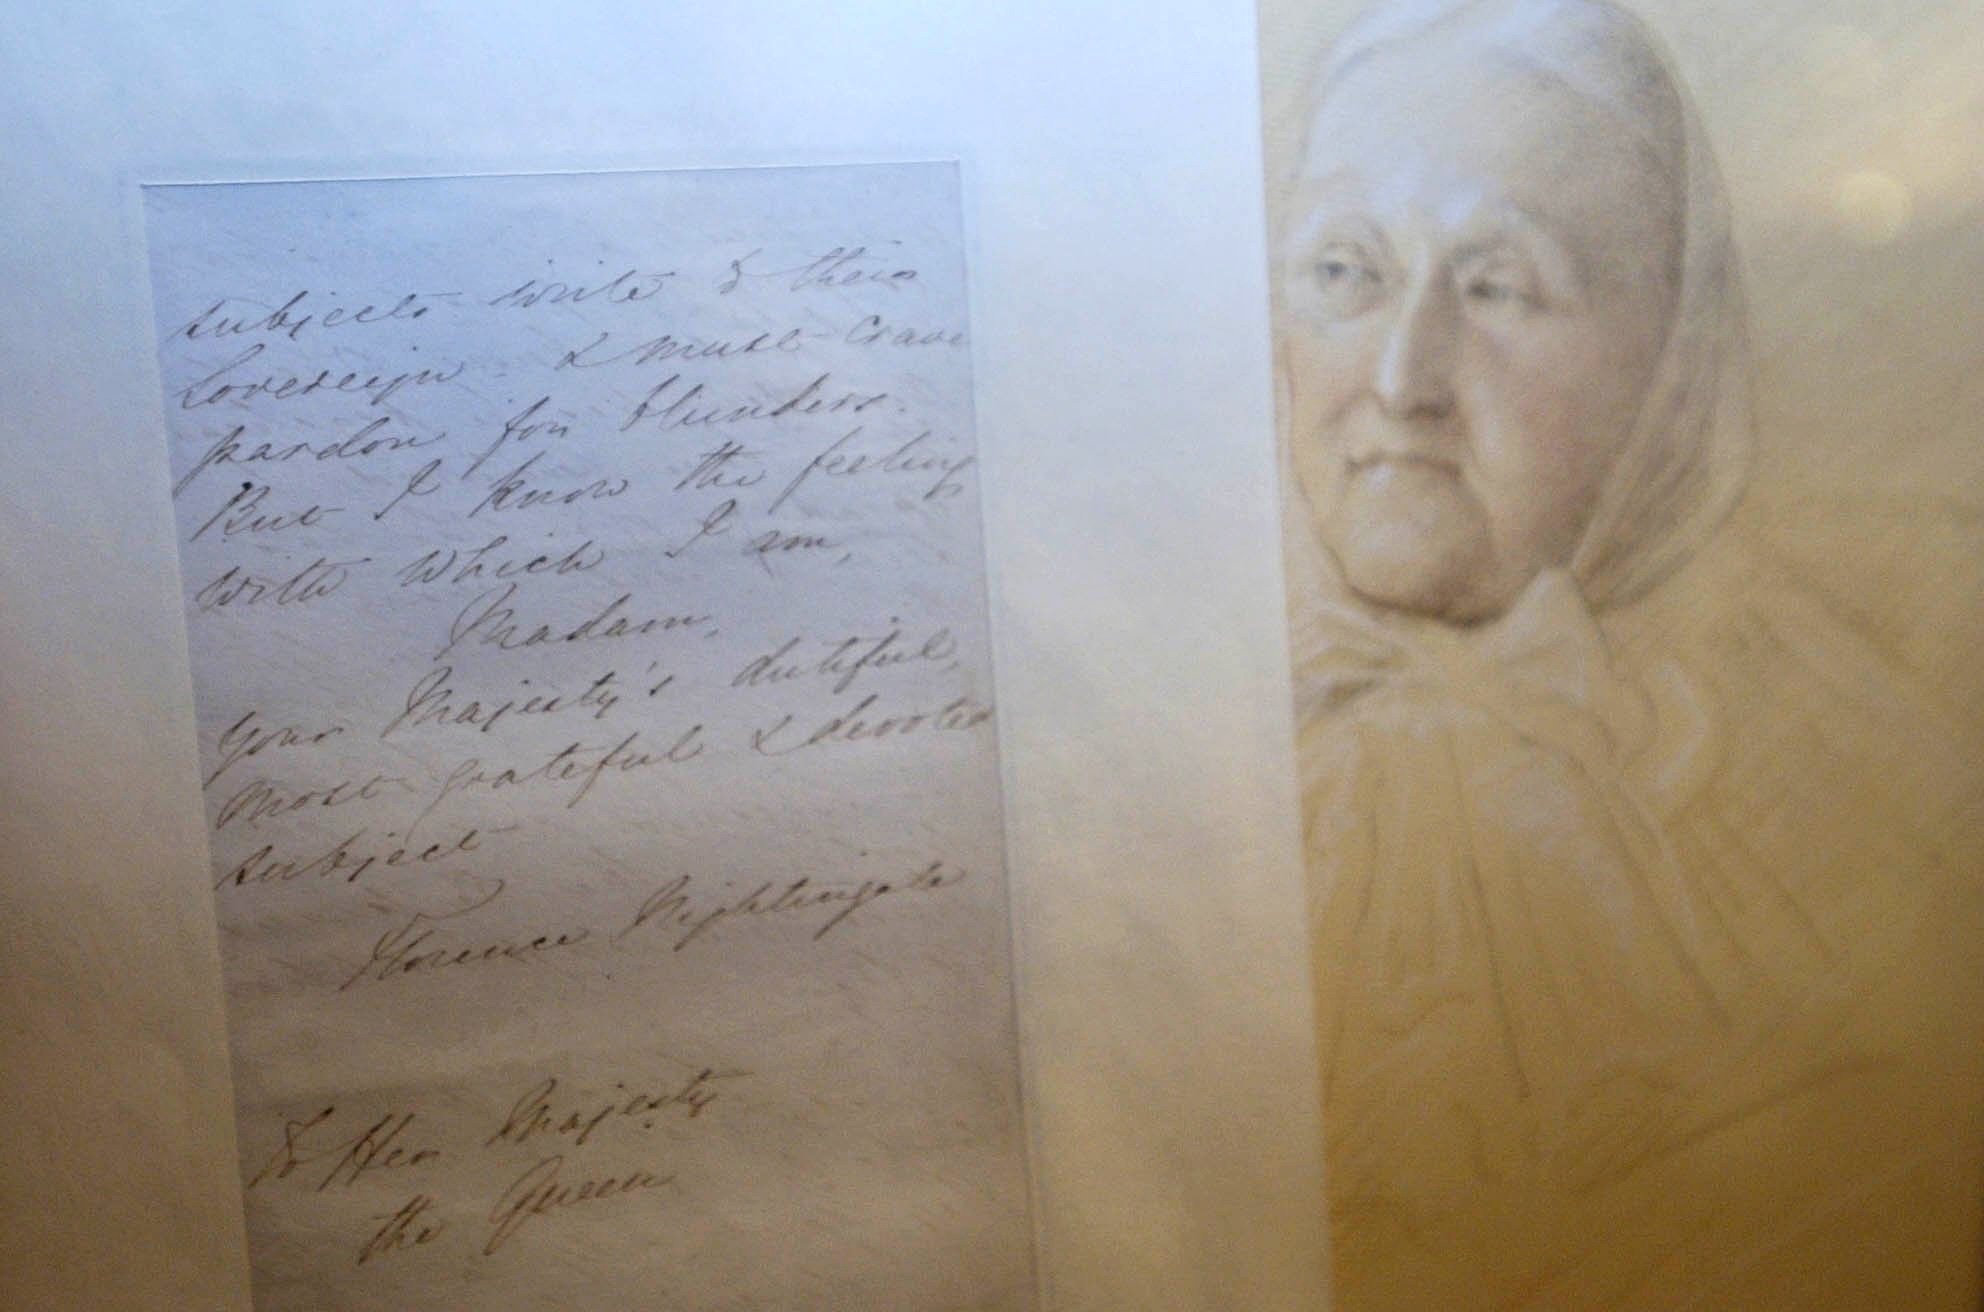 subjects write to their
Sovereign - & must crave
pardon for blunders.
But I know the feeling
with which I am,
Madam,
Your Majesty's dutiful,
most grateful & devoted
subject
Florence Nightingale
To Her Majesty
the Queen